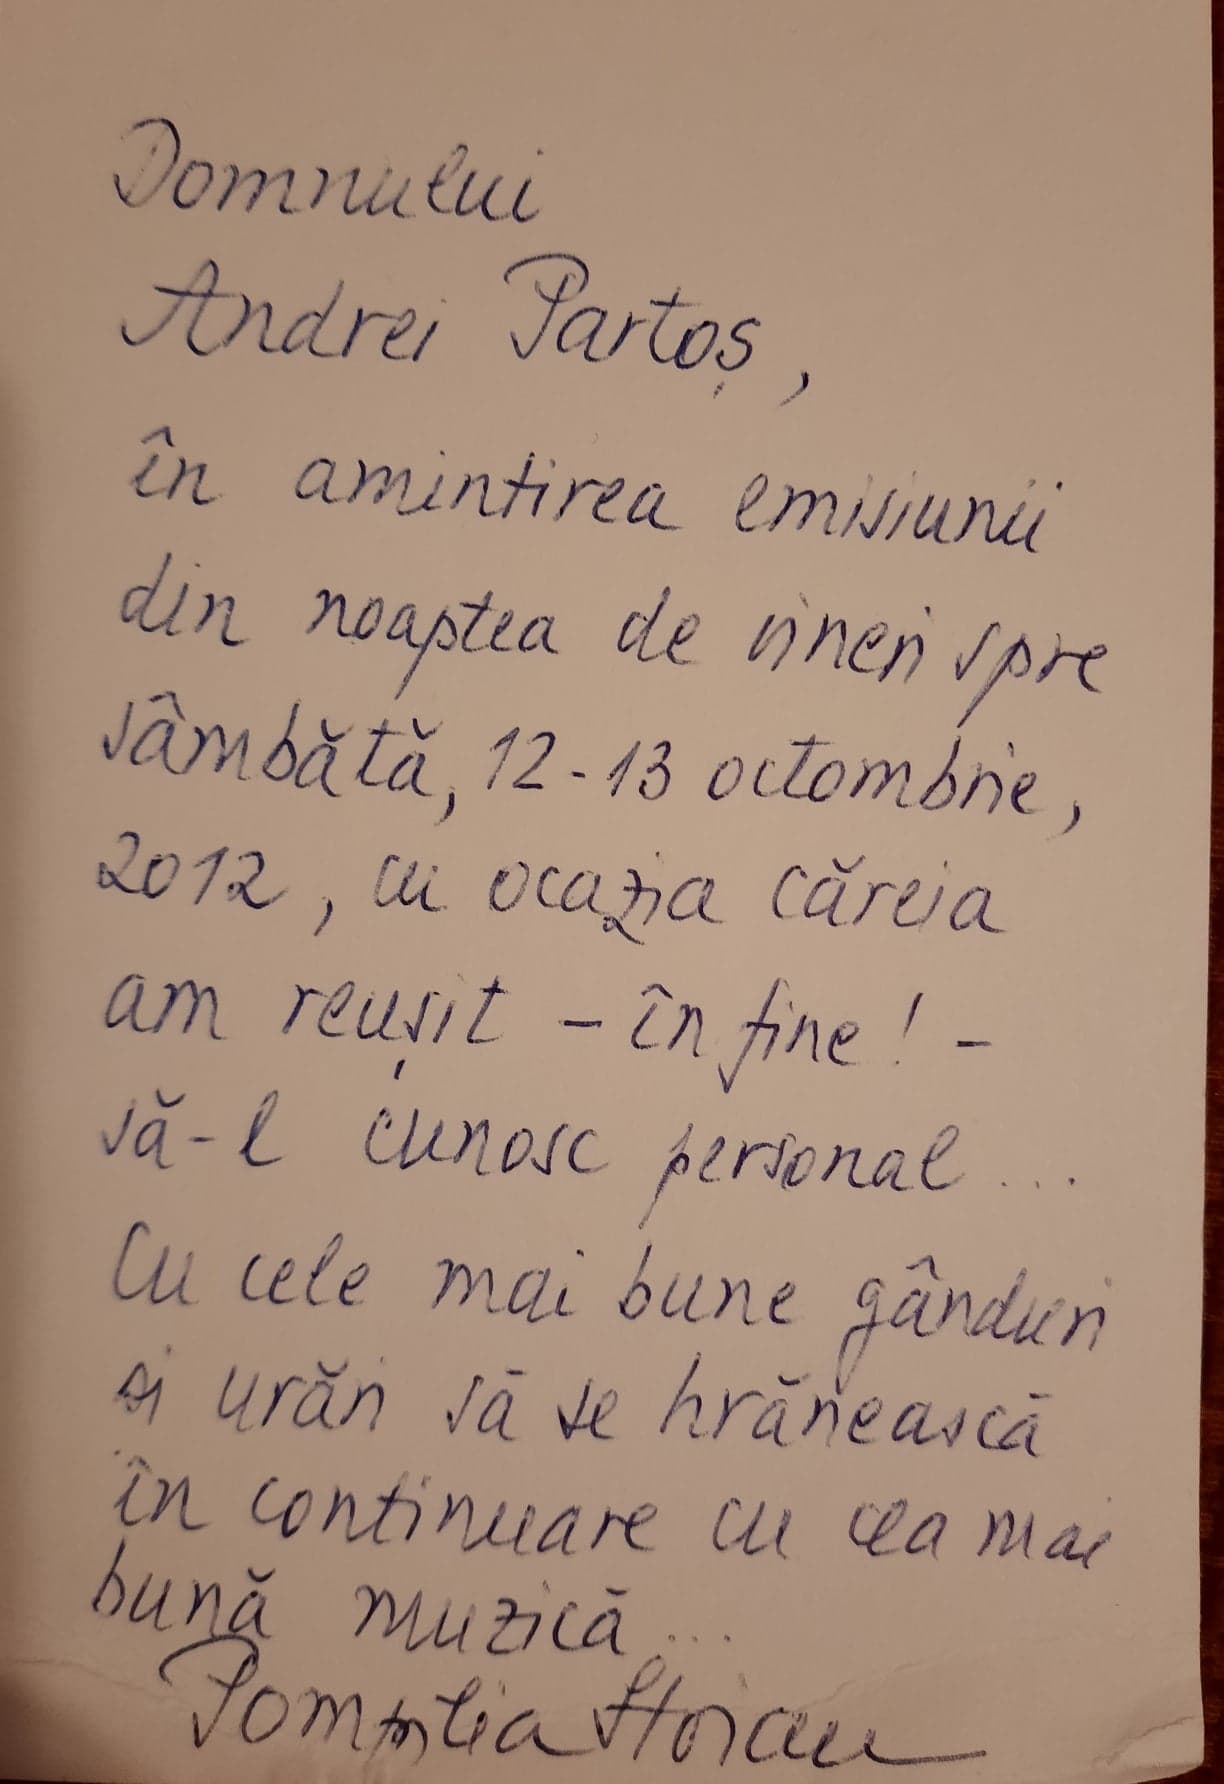 Domnului
Andrei Partoș,
în amintirea emisiunii
din noaptea de vineri spre
sâmbătă, 12-13 octombrie,
2012, cu ocazia căreia
am reușit - în fine! -
să-l cunosc personal...
Cu cele mai bune gânduri
și urări să se hrănească
în continuare cu cea mai
bună muzică...
Pompilia Stoian